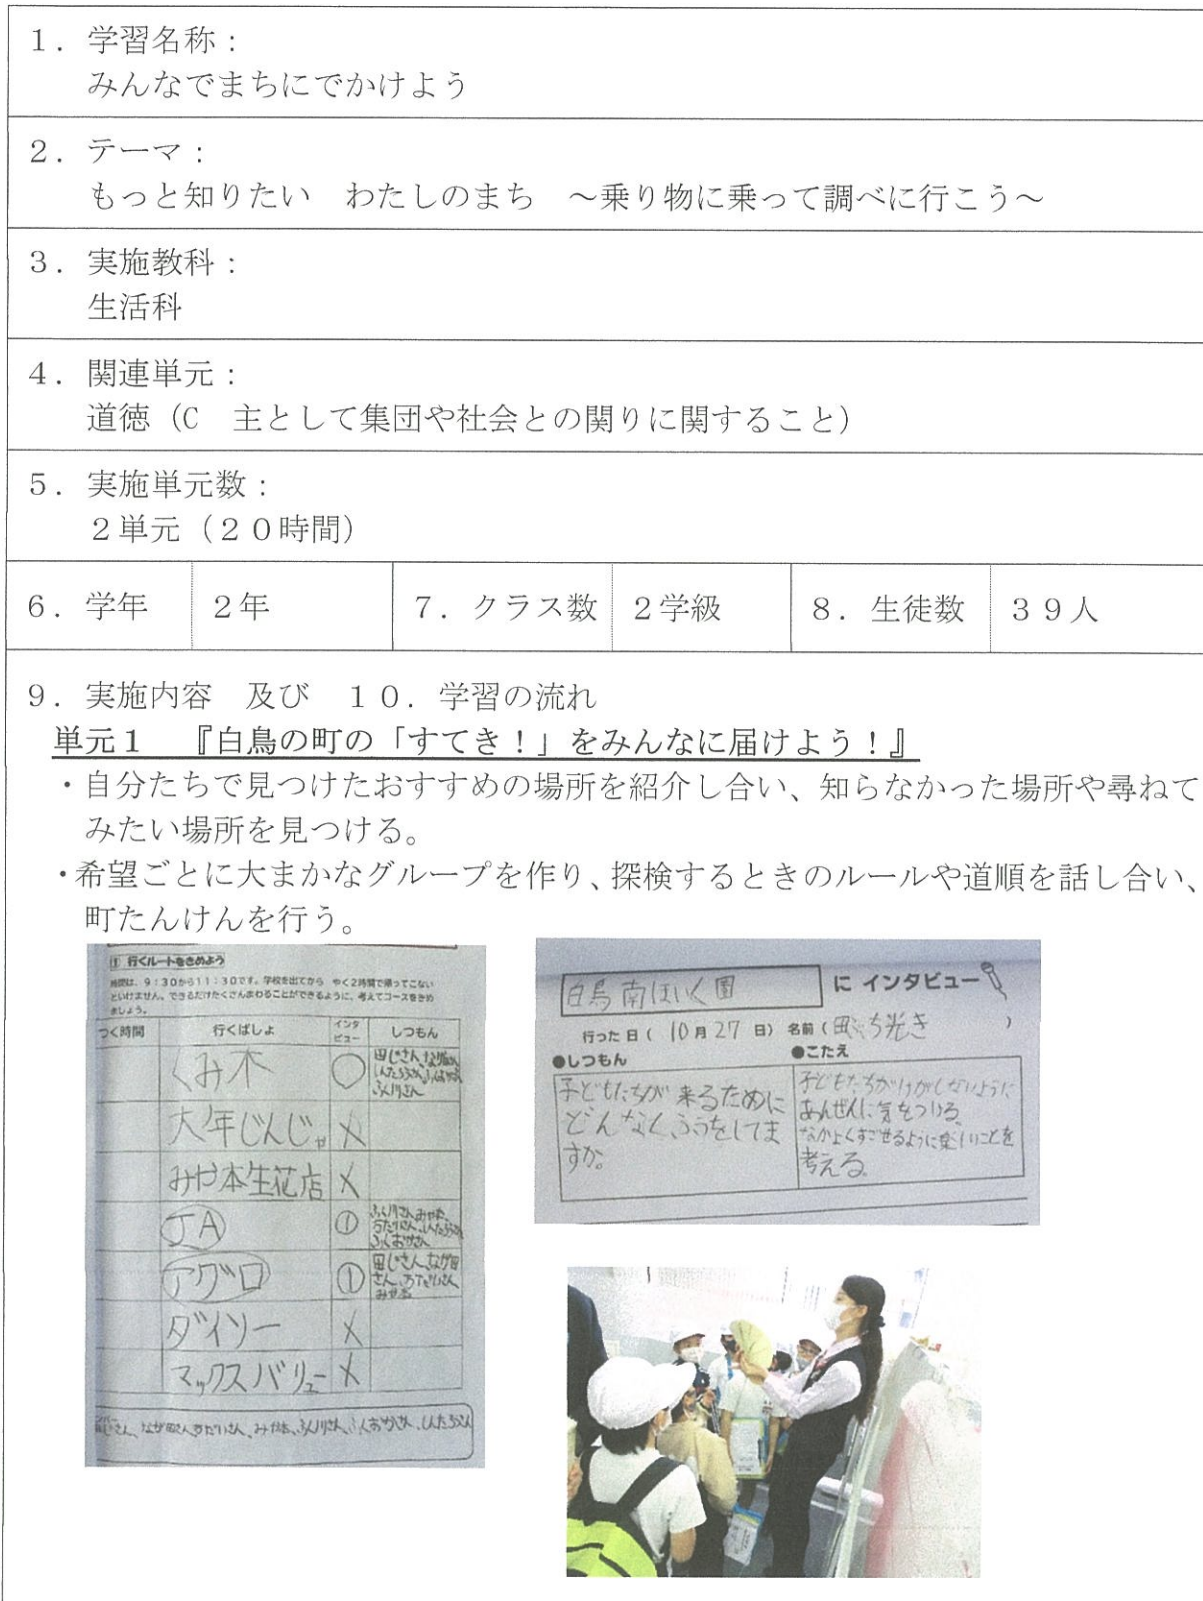 １．学習名称：
みんなでまちにでかけよう
２．テーマ：
もっと知りたい　わたしのまち　～乗り物に乗って調べに行こう～
３．実施教科：
生活科
４．関連単元：
道徳（C　主として集団や社会との関りに関すること）
５．実施単元数：
２単元（２０時間）
６．学年　２年　７．クラス数　２学級　８．生徒数　３９人
９．実施内容　及び　１０．学習の流れ
単元１　『白鳥の町の「すてき！」をみんなに届けよう！』
・自分たちで見つけたおすすめの場所を紹介し合い、知らなかった場所や尋ねて
みたい場所を見つける。
・希望ごとに大まかなグループを作り、探検するときのルールや道順を話し合い、
町たんけんを行う。
① 行くルートをきめよう
時間は、9：30から11：30です。学校を出てから　やく2時間で帰ってこない
といけません。できるだけたくさんまわることができるように、考えてコースをきめ
ましょう。
つく時間　行くばしょ　インタビュー　しつもん
くみ木　○
大年じんじゃ　×
みや本生花店　×
JA　①
アグロ　①
ダイソー　×
マックスバリュー　×
白鳥南ほいく園　に インタビュー
行った日（ 10月27日）名前（
●しつもん　●こたえ
子どもたちが来るために
どんなくふうをしてま
すか。
子どもたちがけがしないように
あんぜんに気をつける。
なかよくすごせるように楽しいことを
考える。